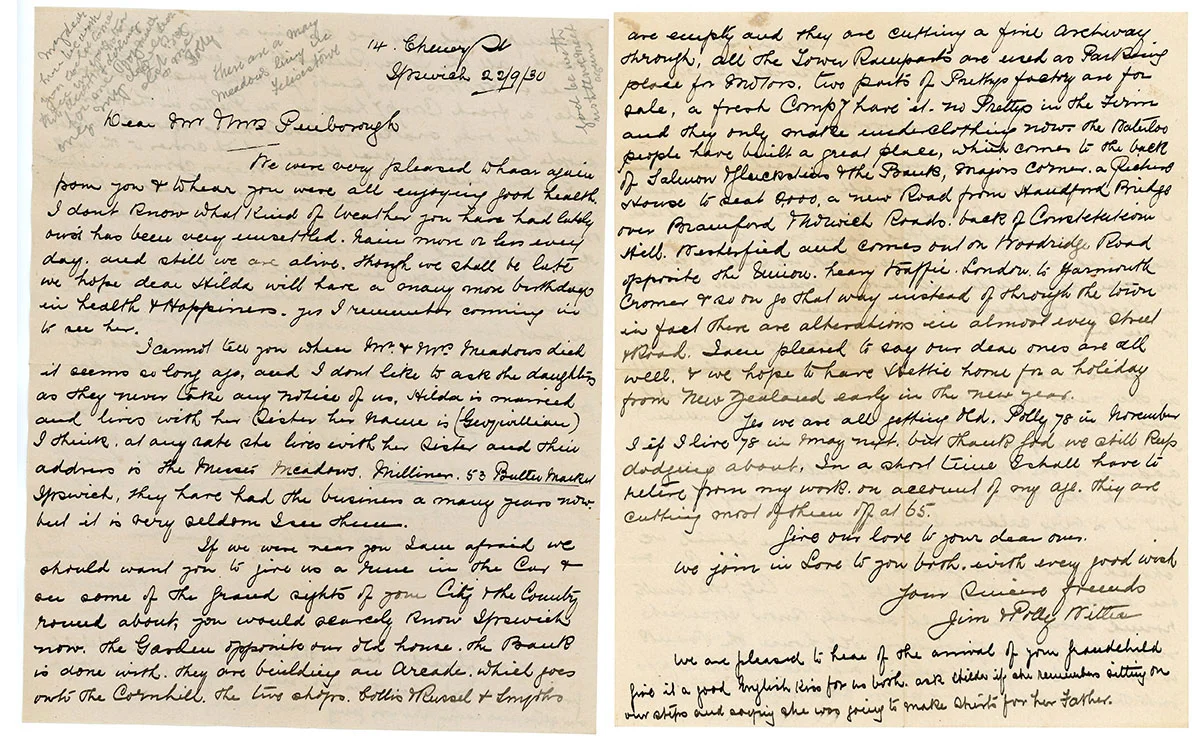 14. Cheney St
Ipswich 22/9/30
There are a many
Meadows living in
Felixstowe
God be with
us till we meet
again
My dear
Polly
Dear Mr Mrs Penborough
We were very pleased to hear again
from you & to hear you were all enjoying good health.
I dont know what kind of weather you have had lately
ours has been very unsettled. rain more or less every
day. and still we are alive. though we shall be late
we hope dear Hilda will have a many more birthdays
in health & Happiness. yes I remember coming in
to see her.
I cannot tell you when Mr. & Mrs Meadows died
it seems so long ago, and I dont like to ask the daughters
as they never take any notice of us, Hilda is married
and lives with her Sister her name is (
I think. at any rate she lives with her Sister and their
address is the Misses Meadows. Milliner. 53 Butter Market
Ipswich, they have had the business a many years now.
but it is very seldom I see them.
If we were near you I am afraid we
should want you to give us a run in the Car &
see some of the grand sights of your City & the Country
round about, you would scarcely know Ipswich
now. the Garden opposite our old house. the Bank
is done with. they are building an Arcade. which goes
onto the Cornhill. the two shops. Cottis & Russel & Smyths
are empty and they are cutting a fine Archway
through, all the Tower Ramparts are used as Parking
place for Motors. two parts of Prettys factory are for
sale, a fresh Compy have it. no Prettys in the Firm
and they only make underclothing now. the Waterloo
people have built a great place, which comes to the back
of Salmon & Glucksteins & the Bank, Majors Corner. a Picture
House to seat 2000, a new Road from Handford Bridge
over Bramford & Norwich Roads. back of Constetution
Hill. Westerfield and comes out on Woodridge Road
opposite the Union. heavy traffic. London. to Yarmouth
Cromer & so on go that way instead of through the town
in fact there are alterations in almost evry street
& Road. I am pleased to say our dear ones are all
well. & we hope to have Hettie home for a holiday
from New Zealand early in the new year.
Yes we are all getting Old. Polly 78 in November
I if I live 78 in May next. but thank God we still keep
dodging about. In a short time I shall have to
retire from my work. on account of my age. they are
cutting most of them off at 65.
Give our love to your dear ones.
We join in Love to you both. with every good wish
Your Sincere friends
Jim & Polly
We are pleased to hear of the arrival of your Grandchild
give it a good English Kiss for us both. ask Hilda if she remembers sitting on
our steps and saying she was going to make shirts for her Father.